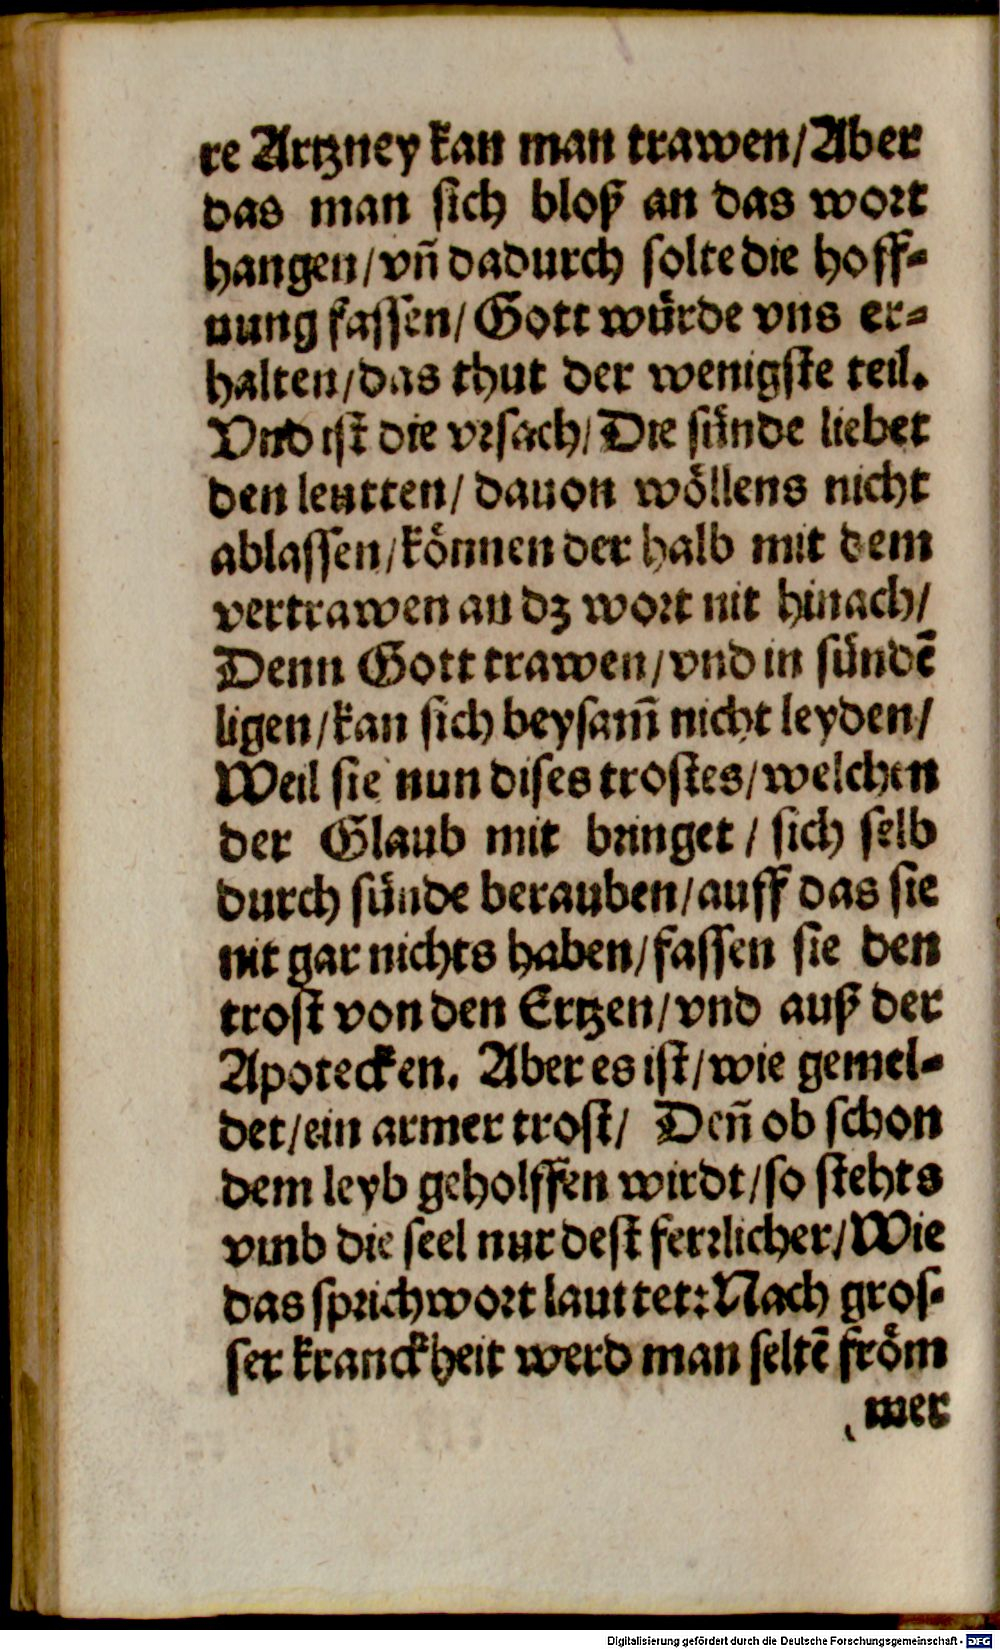 re Artzney kan man trawen/Aber
das man sich bloß an das wort
hangen/vñ dadurch solte die hoff-
nung fassen/ Gott würde vns er-
halten/das thut der wenigste teil.
Vnd ist die vrsach/ Die sünde liebet
den leutten/ dauon wöllens nicht
ablassen/können der halb mit dem
vertrawen an dz wort nit hinach/
Denn Gott trawen/vnd in sündē
ligen/kan sich beysam̃ nicht leyden/
Weil sie nun dises trostes/welchen
der Glaub mit bringet / sich selb
durch sünde berauben/auff das sie
nit gar nichts haben/fassen sie den
trost von den Ertzen/vnd auß der
Apotecken. Aber es ist/wie gemel-
det/ein armer trost/ Deñ ob schon
dem leyb geholffen wirdt/so stehts
vmb die seel nur dest ferrlicher/Wie
das sprichwort lauttet: Nach gros-
ser kranckheit werd man seltē fröm
mer
Digitalisierung gefördert durch die Deutsche Forschungsgemeinschaft - DFG